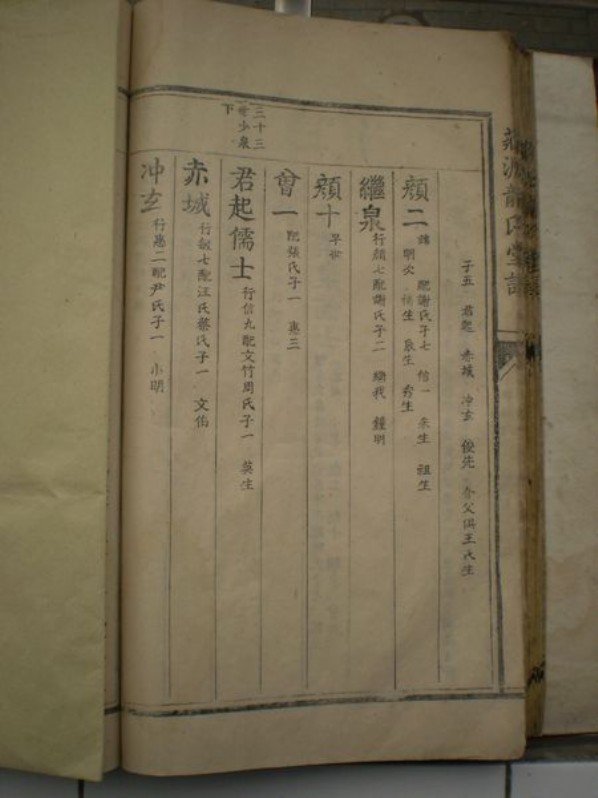 子五 君起 赤城 冲玄 俊先 父俱王氏生
顏二 配謝氏子七 信一 朱生 祖生
明火 生 泉生 秀生
繼泉 行顏七配謝氏子二 繼我 鍾明
顏十 早世
曾一 配張氏子一 惠三
君起儒士 行信九配文竹周氏子一 莫生
赤城 行敏七配汪氏蔡氏子一 文伯
冲玄 行惠二配尹氏子一 小明
三十三
少泉
下
龍氏堂譜